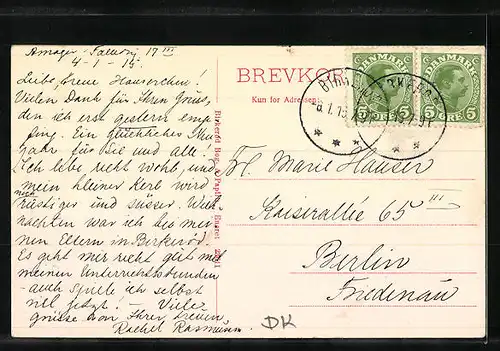 Amager - 17 III
4-1-15.
Liebe, treue Hauserchen!
Vielen Dank für Ihren Gruss,
den ich erst gestern emp-
fing. Ein glückliches Neu-
jahr für Sie und alle.
Ich lebe recht wohl, und
mein kleiner Kerl wird
noch rüstiger und süsser. Weih-
nachten war ich bei mei-
nen Eltern in Birkerød.
Es geht mir recht gut mit
meinen Unterrichtsstunden
- auch spiele ich selbst
viel jetzt! - Viele
grüsse von Ihrer treuen
Rachel
BREVKORT
Kun for Adressen
Birkerød Bog- & Papirhdl. Eneret
DANMARK
5 ØRE 5
DANMARK
5 ØRE 5
BIRKERØD
Frl. Marie Hauser
Kaiserallée 65 III
Berlin
Friedenau
DK